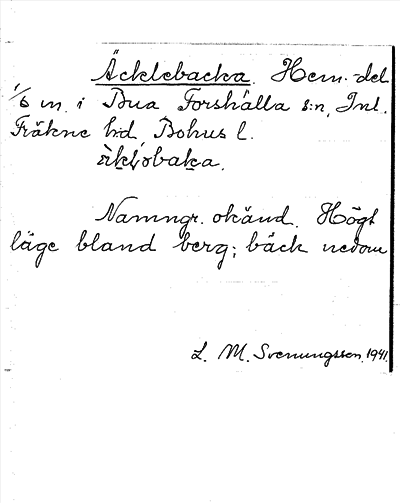 Äcklebacka. Hem.-del
1/6 m. i Bua Forshälla s:n, Inl.
Fräkne hd, Bohus l.

Namngr. okänd. Högt
läge bland berg; bäck nedom
L. M. Svenungsson. 1941.